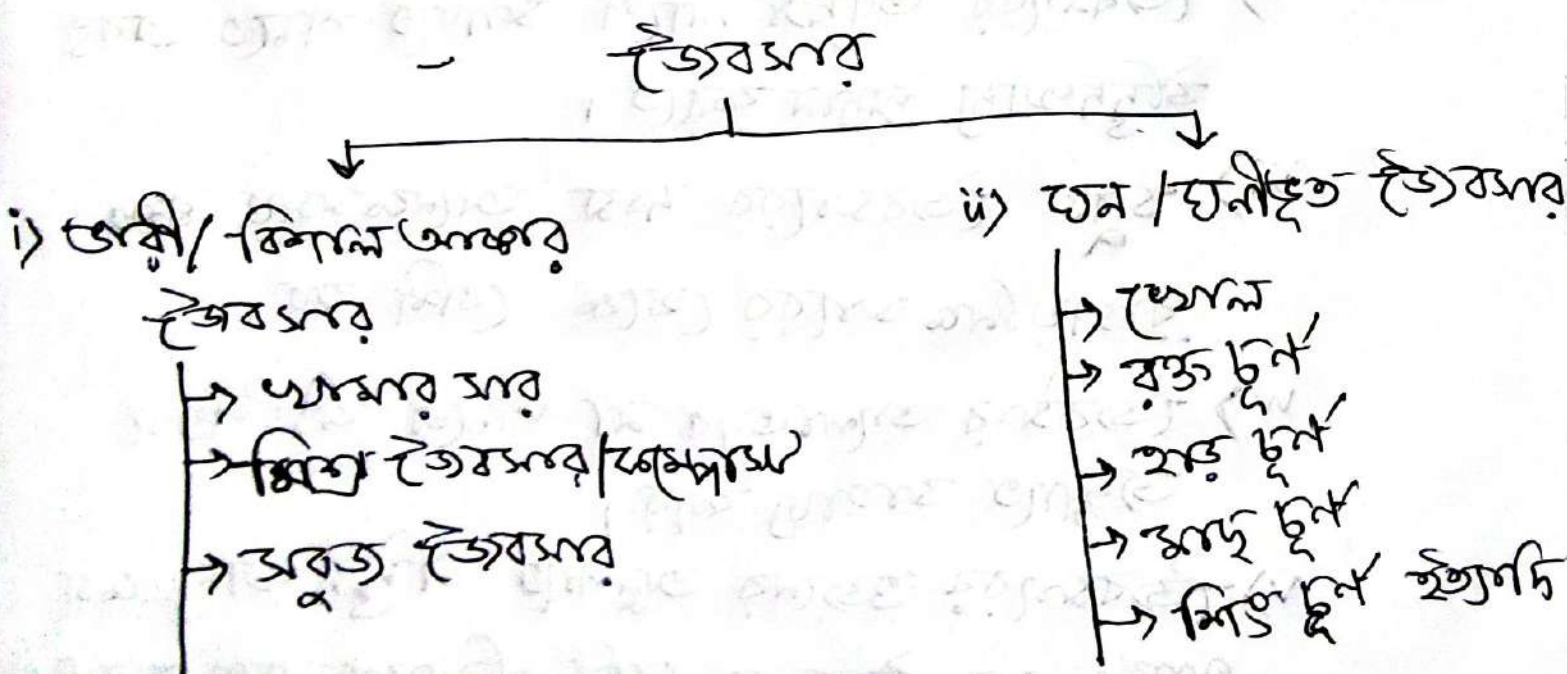 জৈবসার
i) ভারী / বিশাল আকার
জৈবসার
→ খামার সার
→ মিশ্র জৈবসার/কম্পোস্ট
→ সবুজ জৈবসার
ii) ঘন / ঘনীভূত জৈবসার
→ খোল
→ রক্ত চূর্ণ
→ হাড় চূর্ণ
→ মাছ চূর্ণ
→ শিং চূর্ণ ইত্যাদি